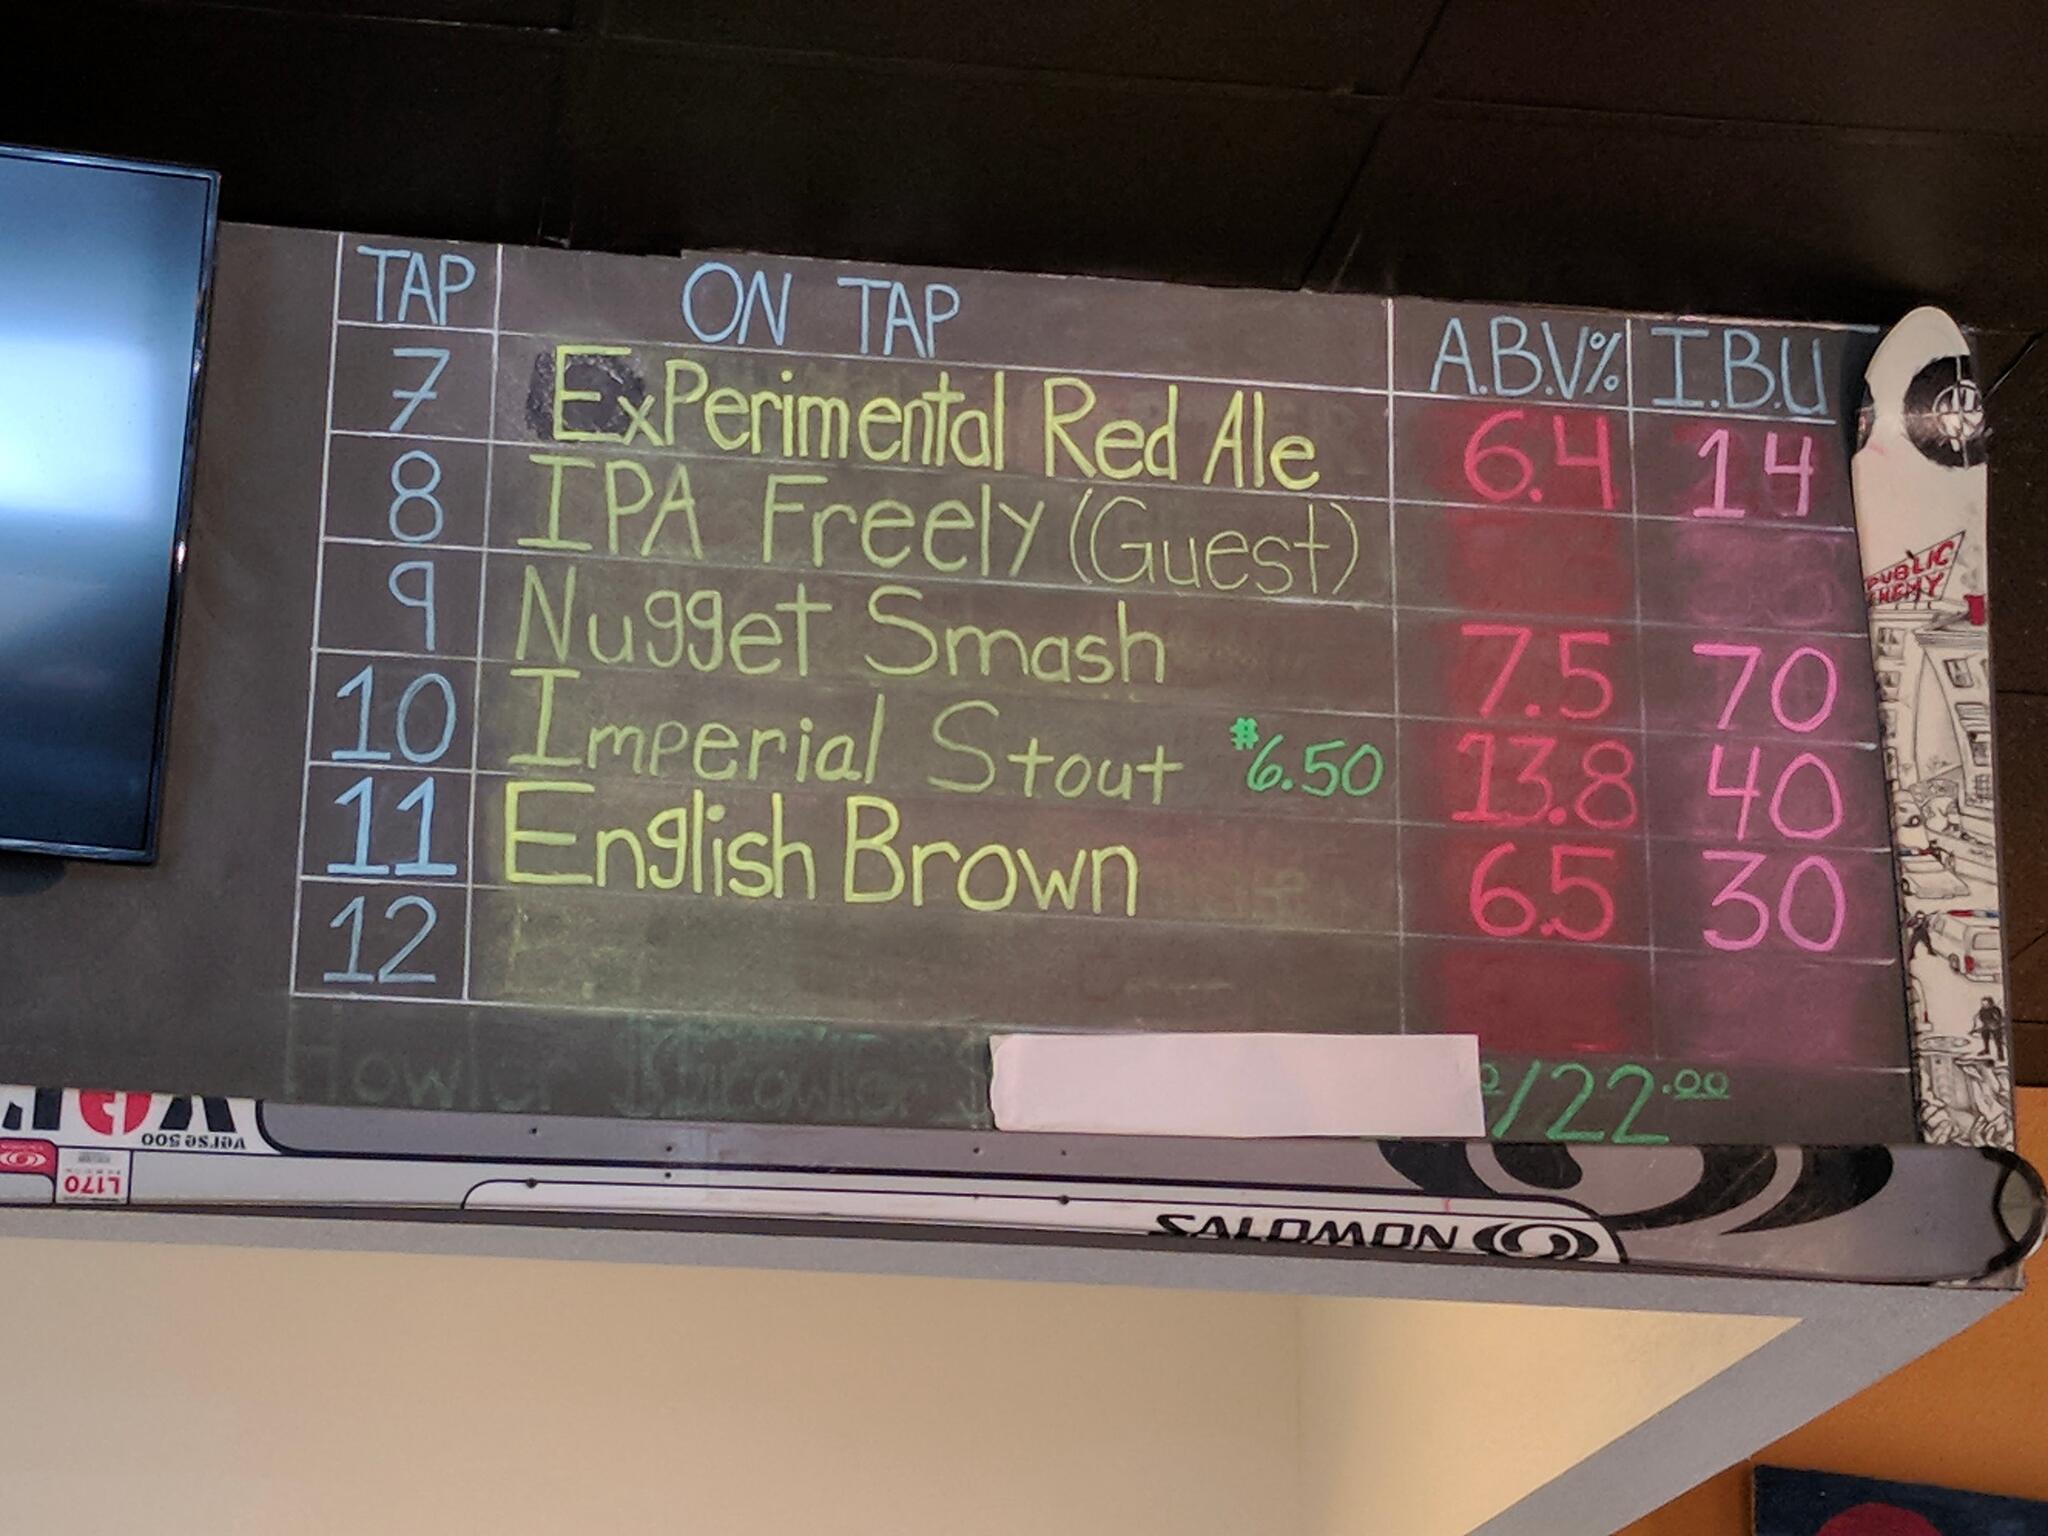 TAP ON TAP A.B.V% I.B.U
7 Experimental Red Ale 6.4 14
8 IPA Freely (Guest)
9 Nugget Smash 7.5 70
10 Imperial Stout $6.50 13.8 40
11 English Brown 6.5 30
12
Howler /22.00
PUBLIC
ENEMY
verse 500
L170
SALOMON